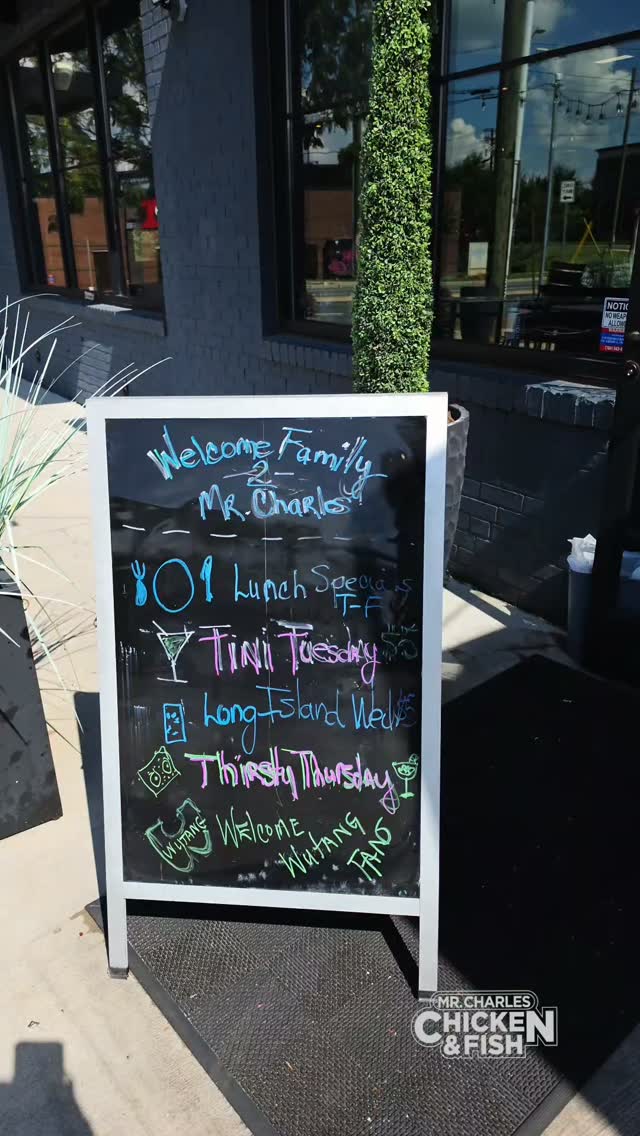 Welcome Family
2
Mr. Charles
Lunch Specials
T-F
Tini Tuesday
Long Island Weds
Thirsty Thursday
Wutang
Welcome
Wutang
Fans
NOTIC
MR. CHARLES
CHICKEN
& FISH